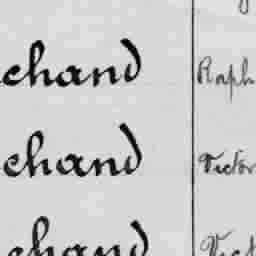 chand Raph
chand Victor
chand Vict